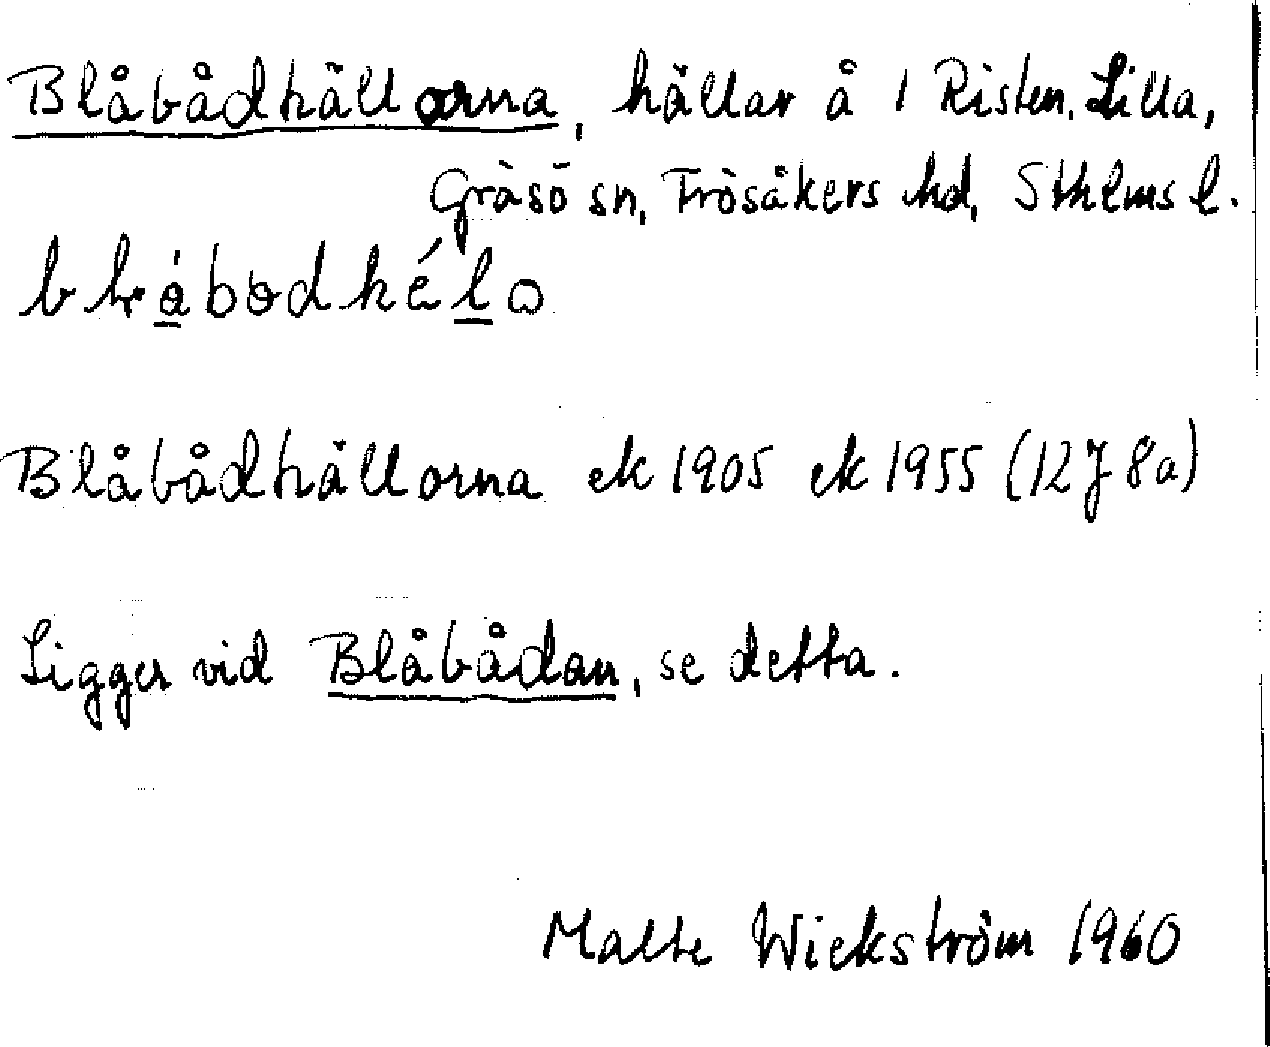 Blåbådhällorna, hällar å 1 Risten, Lilla,
Gräsö sn, Frösåkers hd, Sthlms l.
Blåbådhällorna ek 1905 ek 1955 (12J 8a)
Ligger vid Blåbådan, se detta.
Malte Wickström 1960